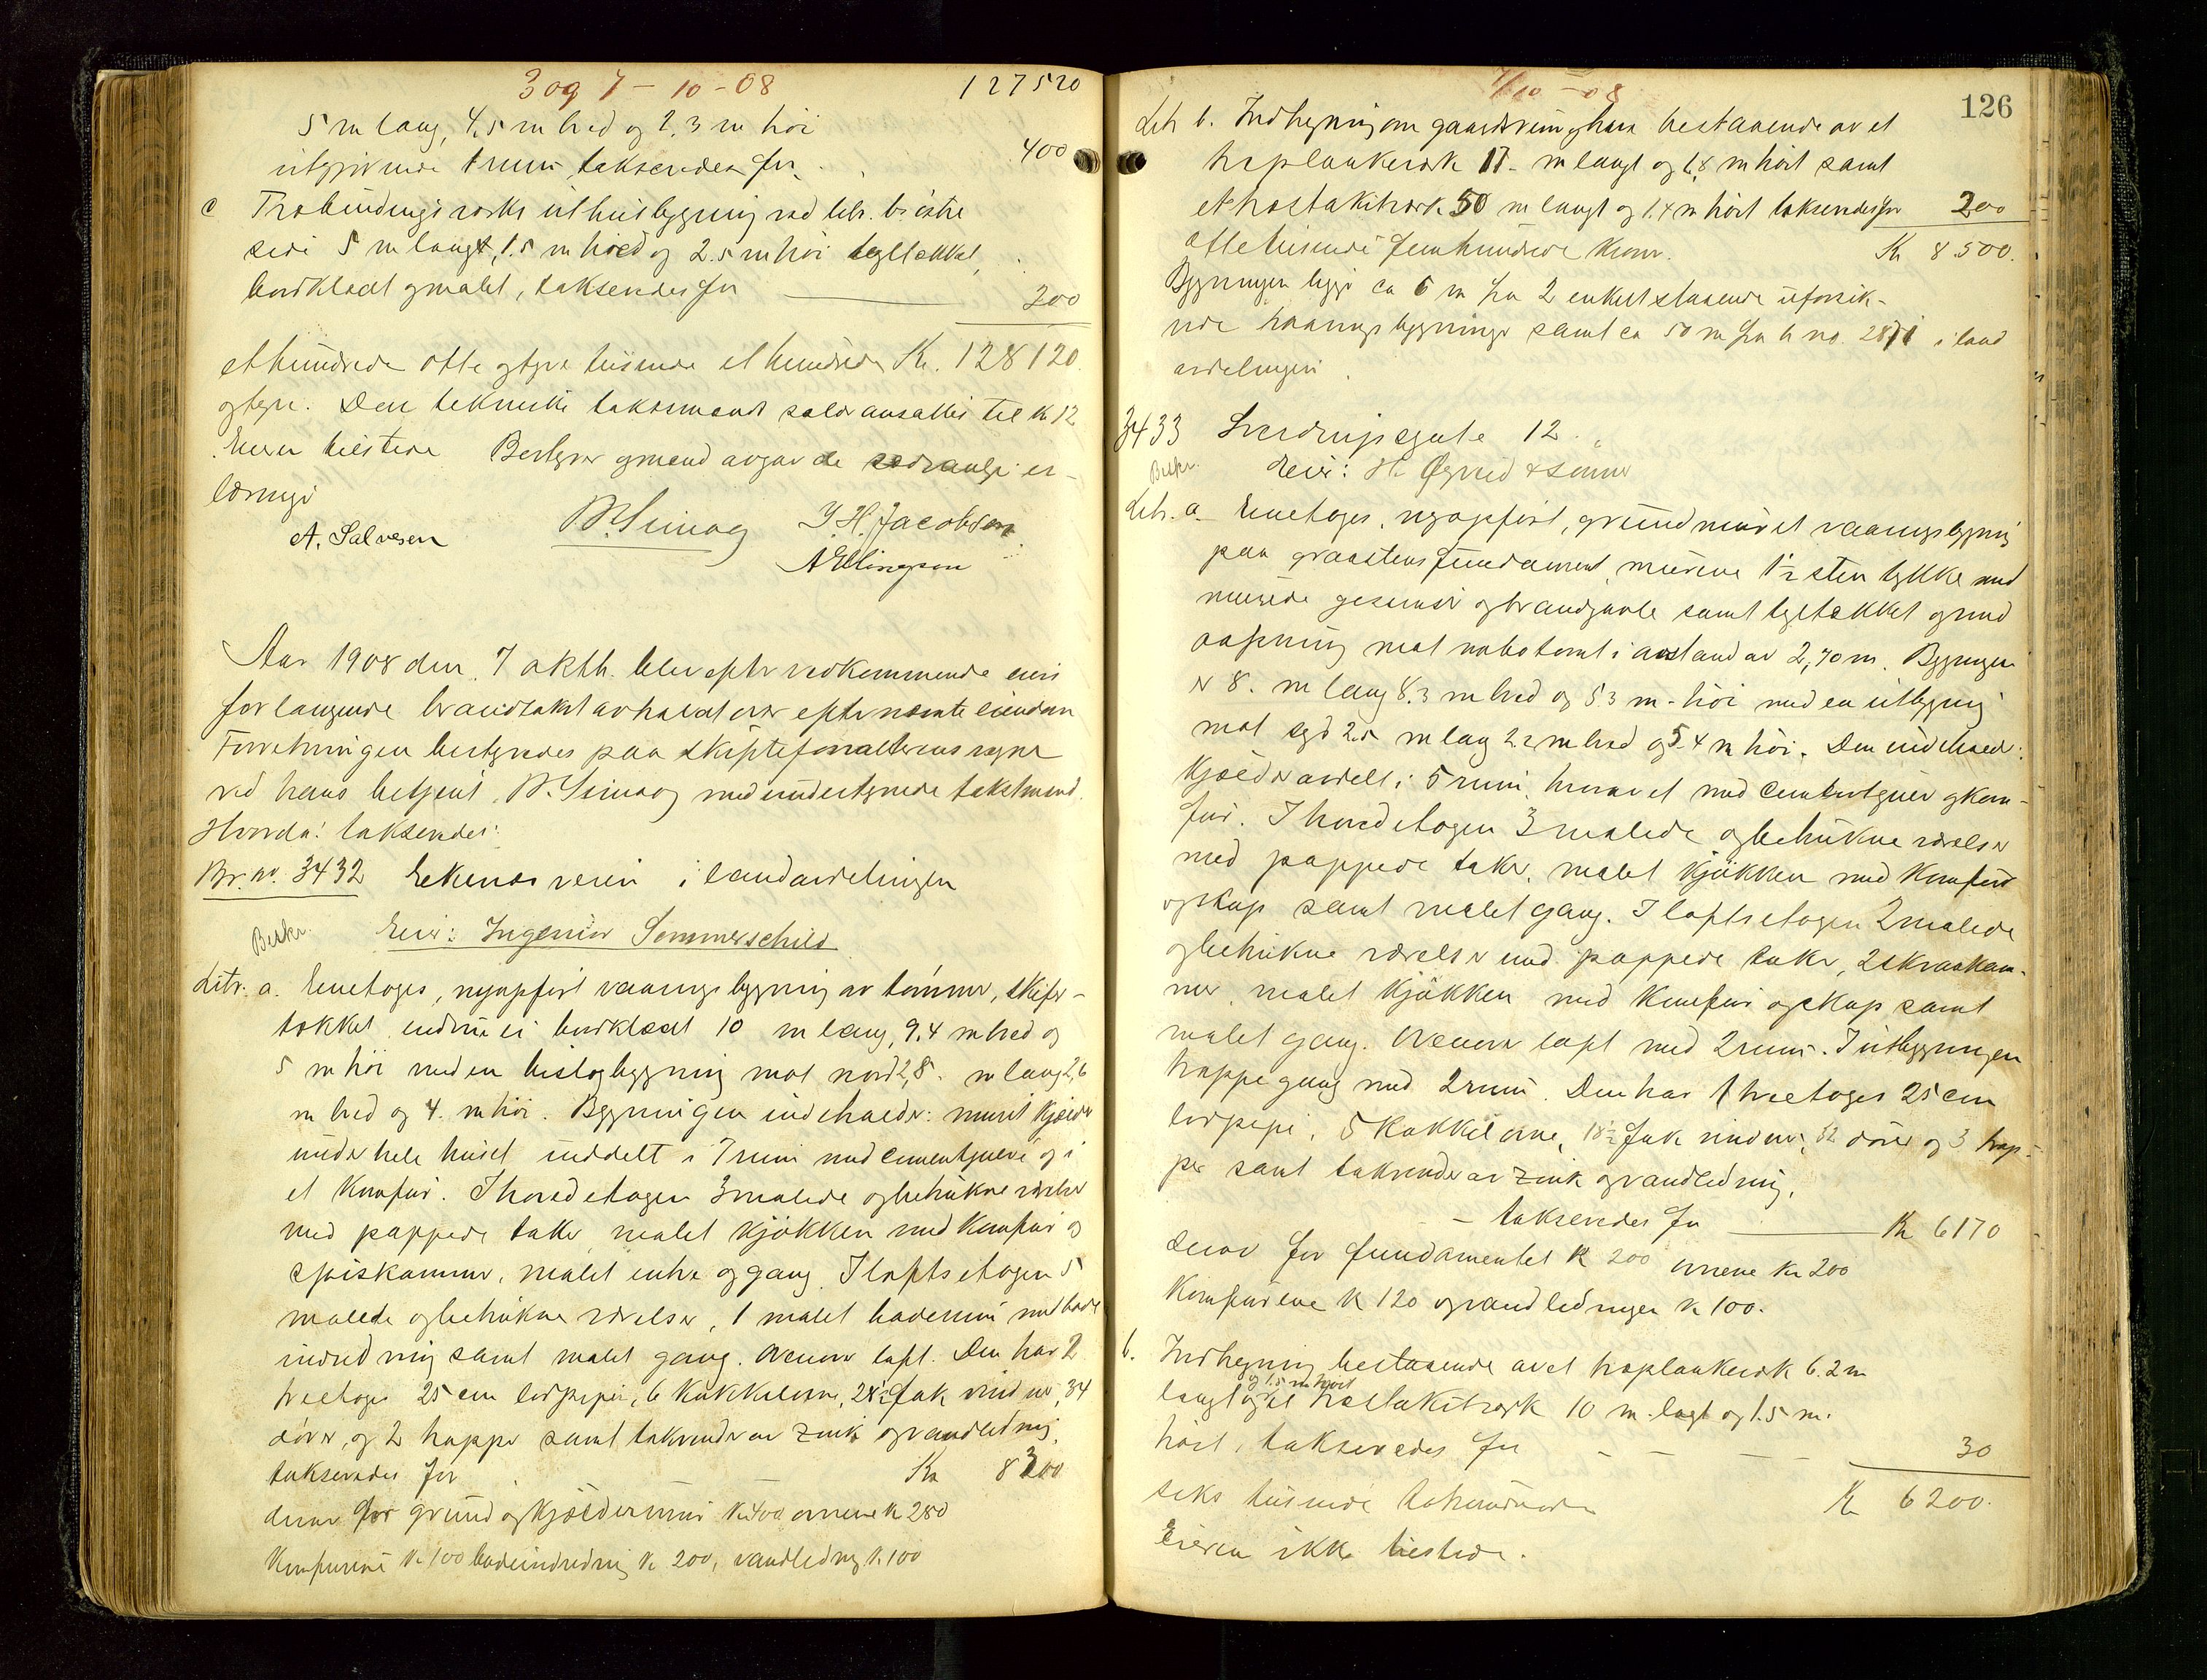 3 og 7 - 10 - 08 127520
5 m lang, 4,5 m bred og 2,3 m höi
utgivende 1 rum takseredes for 400
c Træbindingsverks uthusbygning ved litr. b's östre
side 5 m langt, 1.5 m bred og 2.5 m höi tegltækket,
bordklædt og malet, takseredes for 200
ethundrede otte og tyve tusinde et hundrede Kr. 128120.
og tyve. Den tekniske taksmands salær ansattes til kr 12
Eieren tilstede Bestyrer og mænd avgav de sedvanlige er-
læringer
A. Salvesen B. Simag J. H. Jacobsen
A Ellingsen
Aar 1908 den 7 oktb. blev efter vedkommende eiers
forlangende brandtakst avholdt over efternævnte eiendom
Forretningen bestyredes paa skifteforvalterens vegne
ved hans betjent, B. Simag med undertegnede takstmænd.
Hvorda: takseredes:
Br. no. 3432 Ekenæsveien i landavdelingen
Beskr. Eier: Ingeniør Sommerschild
Litr. a. Enetages, nyopfört vaaningsbygning av tömmer, skifer-
tækket, endnu ei bordklædt 10 m lang, 9.4 m bred og
5 m höi med en bislagbygning mot nord 2,8 m lang 2,6
m bred og 4. m höi. Bygningen indeholder: muret kjælder
under hele huset inddelt i 7 rum med cementgulve og i
et komfur. I hovedetagen 3 malede og betrukne værelser
med pappede taker, malet kjökken med komfur og
spiskammer, malet entre og gang. I loftsetagen 5
malede og betrukne værelser, 1 malet baderum med bade
indredning samt malet gang. Ovenover loft. Den har 2
treetages 25 cm lodpiper, 6 kakkelovne, 28½ fak vinduer, 34
dörer, og 2 trapper samt takrender av zink og vandledning,
takseredes for Kr 8300
derav for grund og kjældermur kr 400 ovnene kr 280
komfurene kr 100 badeindredning kr 200, vandledning kr 100
7/10 - 08
126
Litr b. Indhegning om gaardsrum og have bestaaende av et
træplankeverk 17 m langt og 1,8 m höit samt
et træstakitverk 50 m langt og 1.4 m höit takseredes for 200
ottetusinde femhundrede kroner. Kr 8.500.
Bygningen ligger ca 6 m fra 2 enkeltstaaende uforsik-
rede vaaningsbygninger samt ca 50 m fra br no. 2871 i land
avdelingen
3433 Sverdrupsgate 12.
Beskr. Eier: H. Øgreid & sönner
Litr. a. Enetages, nyopfört, grundmuret vaaningsbygning
paa graastensfundament, murene 1½ sten tykke med
murede gesimser og brandgavle samt tegltækket og med
aapning mot nabotomt i avstand av 2,70 m. Bygningen
er 8. m lang 8.3 m bred og 5.3 m höi med en utbygning
mot syd 2.5 m lang 2.2 m bred og 5.4 m höi. Den indeholder:
Kjælder avdelt i 5 rum, hvorav et med cementgulv og kom-
fur. I hovedetagen 3 malede og betrukne værelser
med pappede taker, malet kjökken med komfur
og skap samt malet gang. I loftsetagen 2 malede
og betrukne værelser med pappede taker, 2 skraakam-
mer, malet kjökken med komfur og skap samt
malet gang. Ovenover loft med 2 rum. I utbygningen
trappegang med 2 rum. Den har 1 treetages 25 cm
lodpipe, 5 kakkelovne, 18½ fak vinduer, 32 dörer og 3 trap-
per samt takrender av zink og vandledning,
- takseredes for Kr 6170
derav for fundamentet kr 200 ovnene kr 200
Komfurene kr 120 og vandledningen kr 100.
b. Indhegning bestaaende av et træplankeverk 6.2 m
og 1.5 m höit
langt og et træstakitverk 10 m. lagt og 1.5 m.
höit, takseredes for - - - 30
seks tusinde tohundrede Kr 6200.
Eieren ikke tilstede.